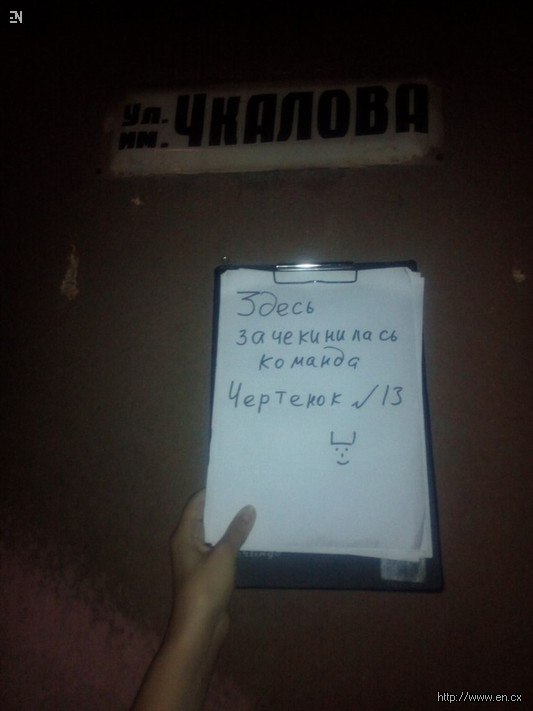 EN
ул.
им. ЧКАЛОВА
Здесь
зачекинилась
команда
Чертенок №13
http://www.en.cx